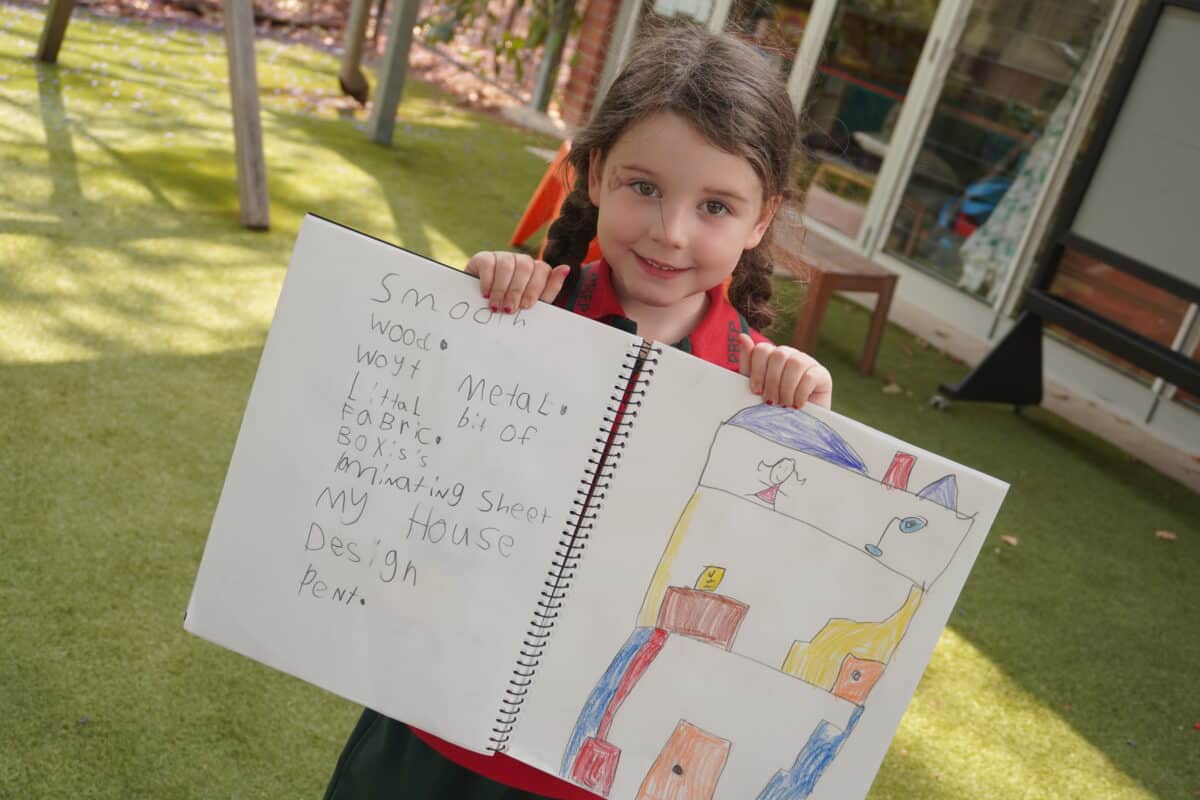 Smooth
wood.
woyt metal.
Littal bit of
FaBric.
BOXis's
laminating sheet
My House
Design
Pent.
PREP